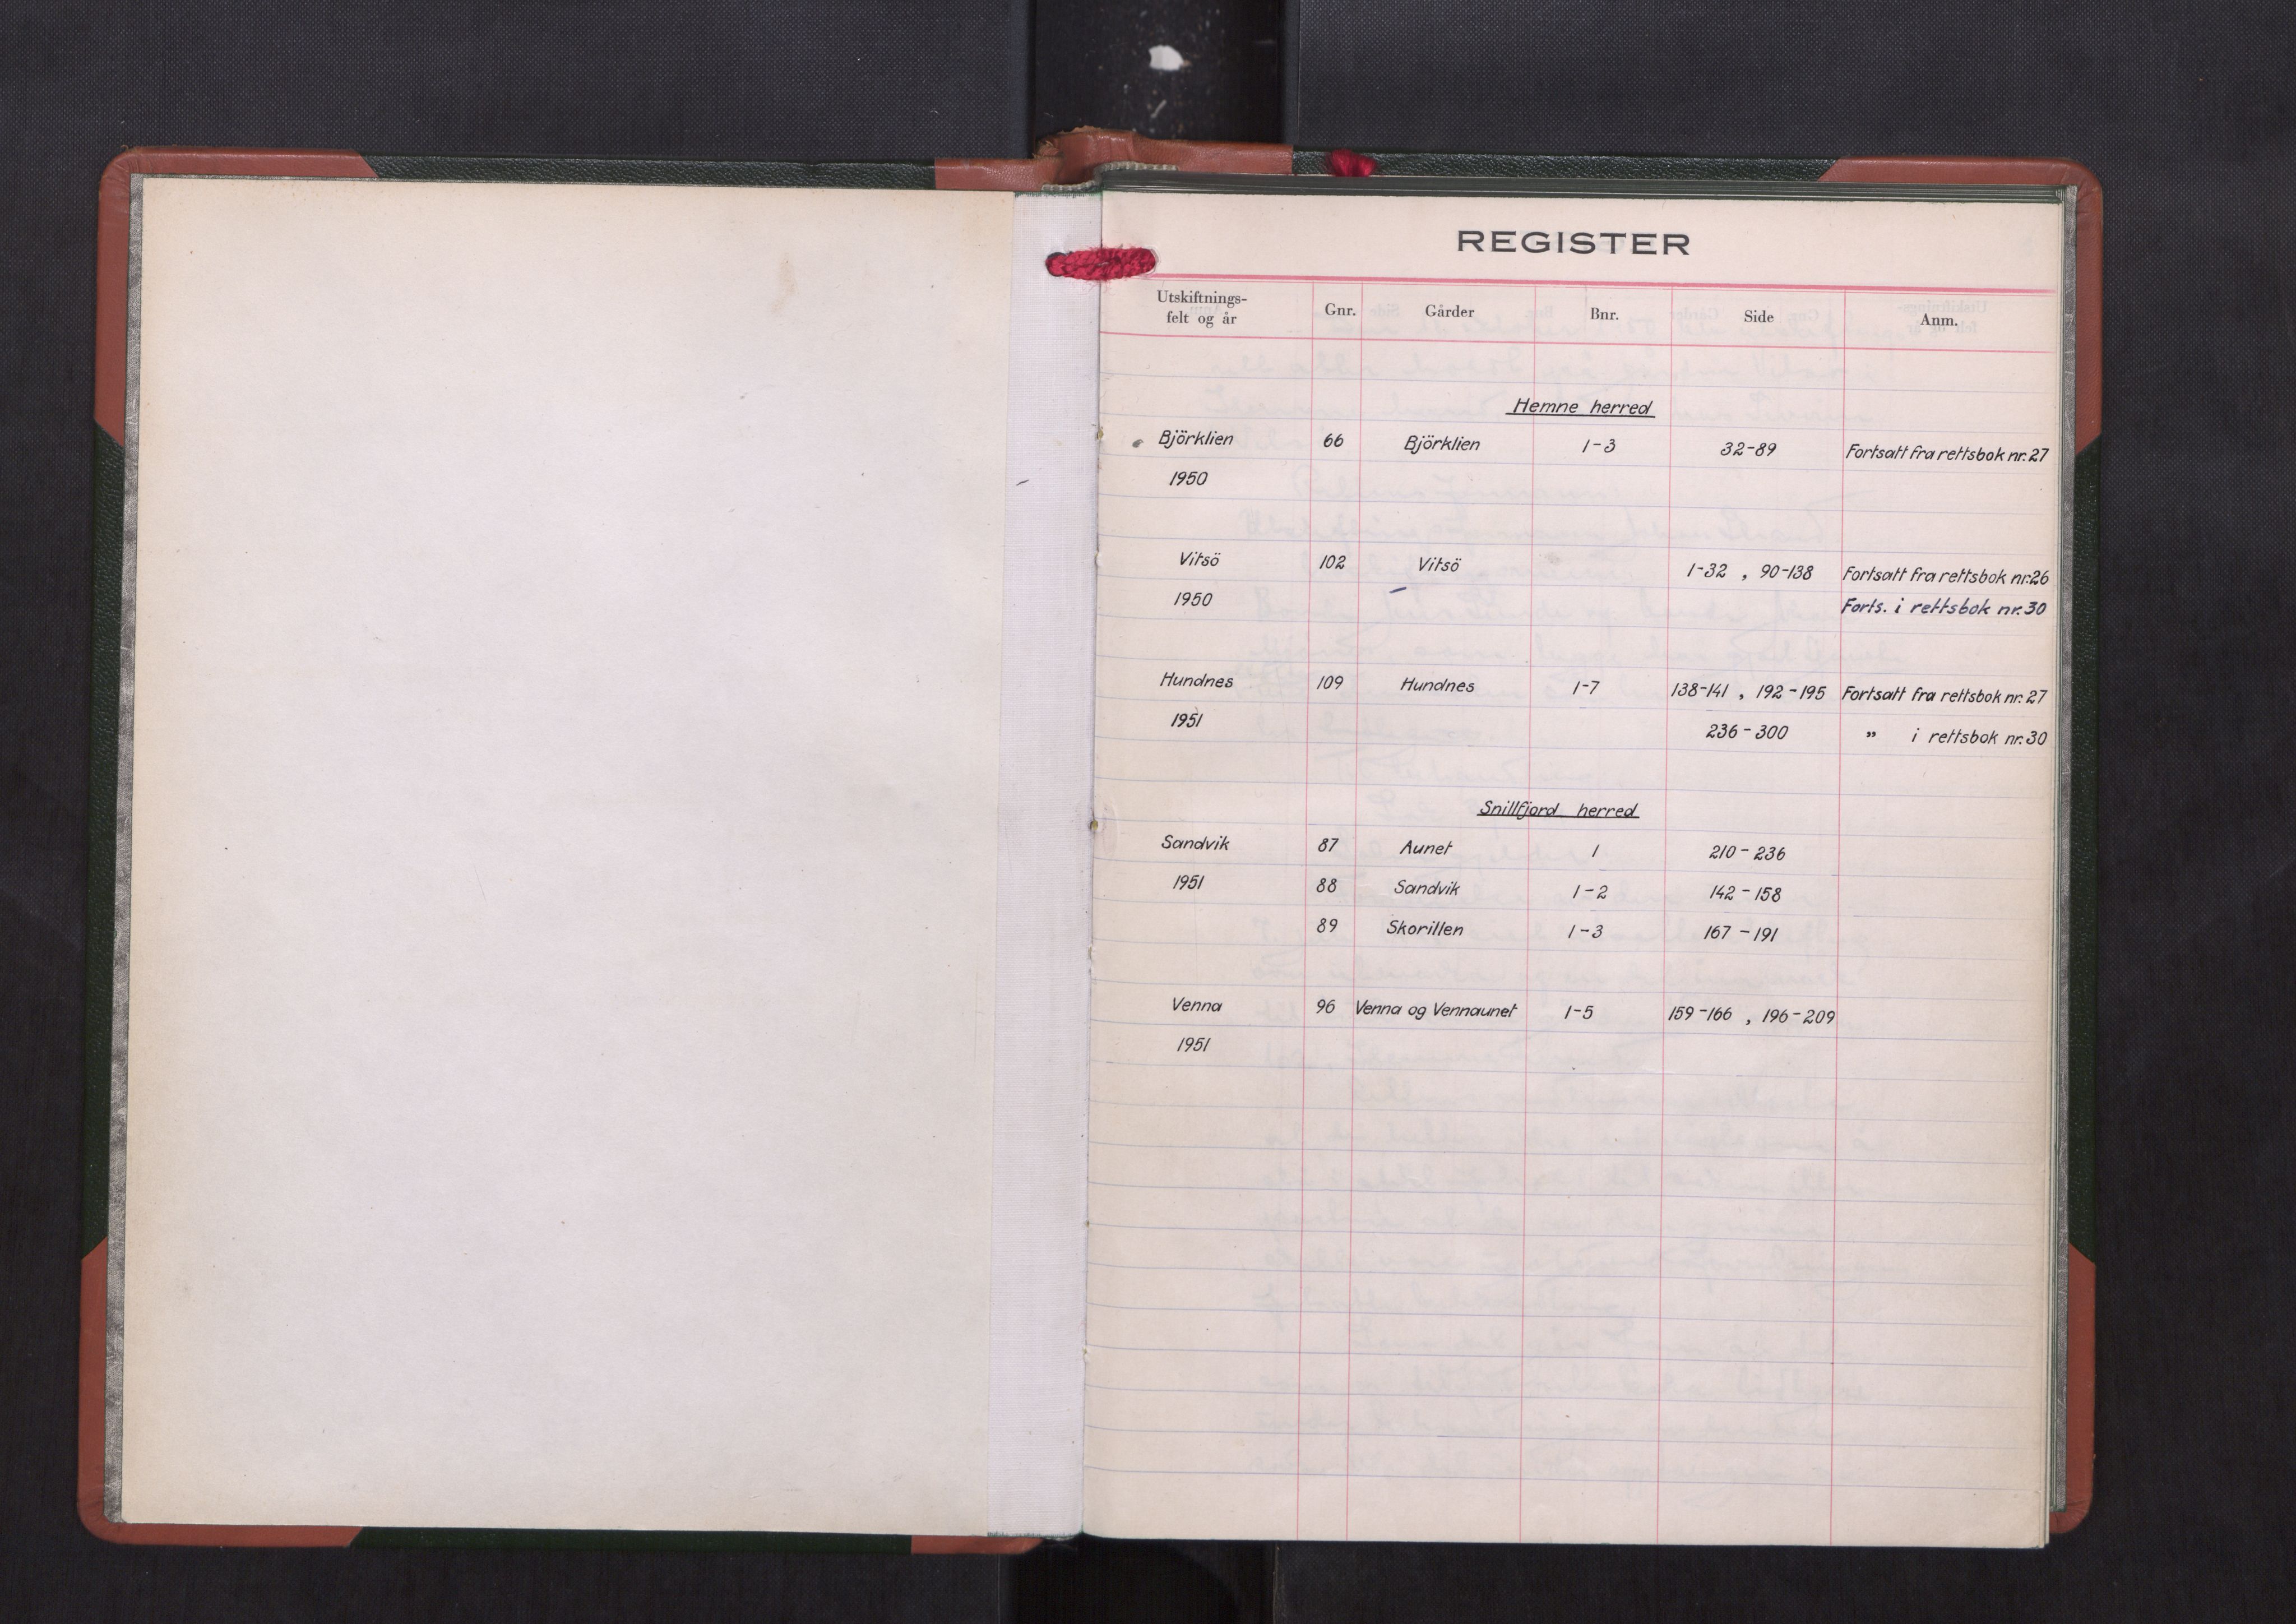 REGISTER
Utskiftnings- felt og år Gnr. Gårder Bnr. Side Anm.
Hemne herred
Björklien 66 Björklien 1-3 32-89 Fortsatt fra rettsbok nr. 27
1950
Vitsö 102 Vitsö 1-32 , 90-138 Fortsatt fra rettsbok nr. 26
1950 Forts. i rettsbok nr. 30
Hundnes 109 Hundnes 1-7 138-141 , 192-195 Fortsatt fra rettsbok nr. 27
1951 236-300 " i rettsbok nr. 30
Snillfjord herred
Sandvik 87 Aunet 1 210-236
1951 88 Sandvik 1-2 142-158
89 Skorillen 1-3 167-191
Venna 96 Venna og Vennaunet 1-5 159-166 , 196-209
1951